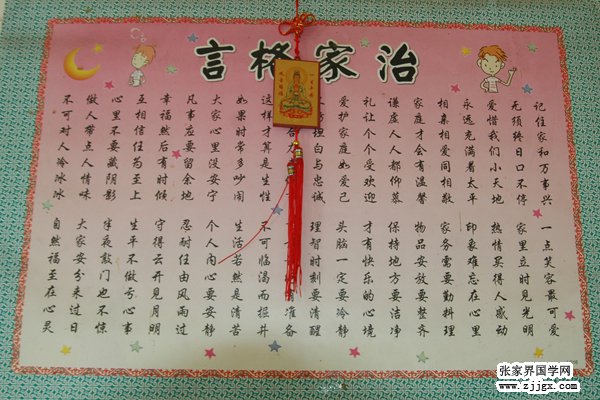 治家格言
记住家和万事兴
无须终日口不停
爱惜我们小天地
永远充满着太平
相亲相爱同相敬
家庭才会有温馨
谦虚人人都仰慕
礼让个个受欢迎
爱护家庭如爱己
理白与忠诚
合力
这样才算是生性
如果时常多吵闹
大家心里没安宁
凡事应要留余地
幸福然后有时候
互相信任为至上
心里不要藏阴影
做人带点人情味
不可对人冷冰冰
一点笑容最可爱
家里立时见光明
热情买得人感动
印象难忘在心里
家务需要勤料理
物品安放要整齐
保持地方要洁净
才有快乐的心境
头脑一定要冷静
理智时刻要清醒
一准备
不可临渴而掘井
生活若然是清苦
个人内心要安静
忍耐任由风雨过
守得云开见月明
生平不做亏心事
半夜敲门也不惊
大家安分来过日
自然福至在心灵
张家界国学网
www.zjjgx.com